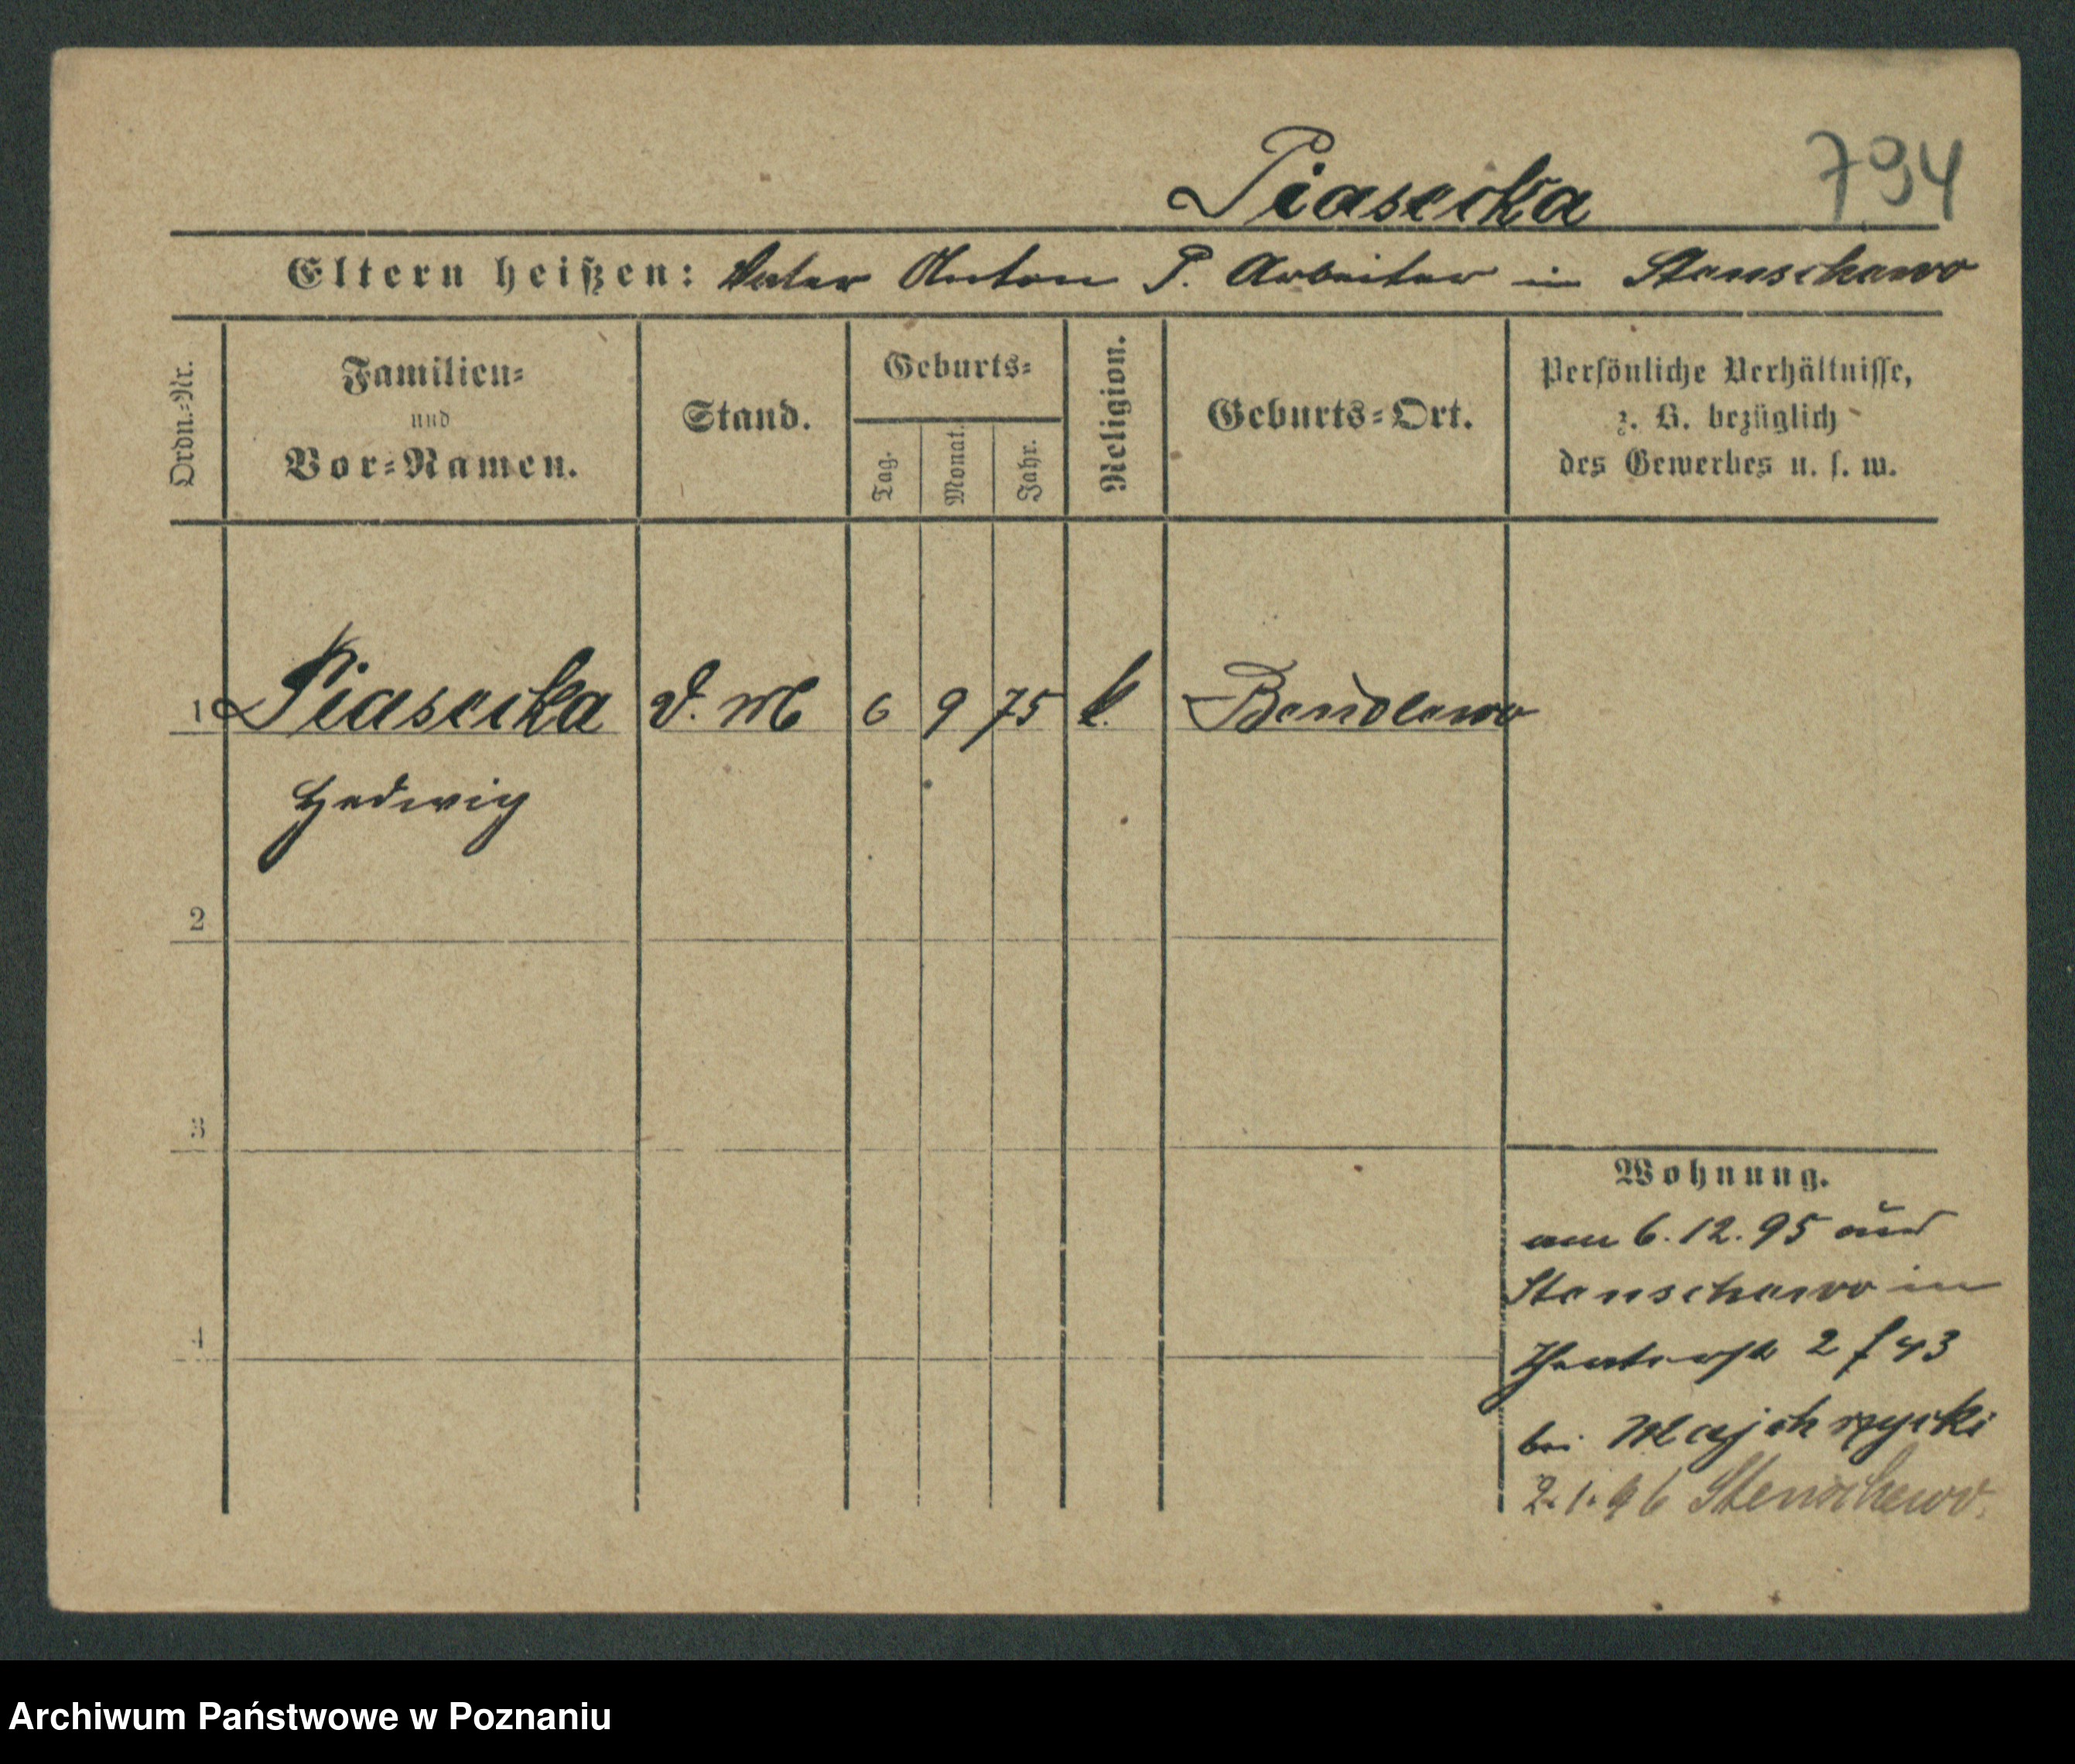 Piasecka 794
Eltern heißen: Vater Anton P. Arbeiter in Stenschewo
Ordn.-Nr.
Familien-
und
Vor-Namen.
Stand.
Geburts-
Tag.
Monat.
Jahr.
Religion.
Geburts-Ort.
Persönliche Verhältnisse,
z. B. bezüglich
des Gewerbes u. s. w.
1 Piasecka D. M 6 9 75 k. Bendlewo
Hedwig
2
3
4
Wohnung.
am 6.12.95 aus
Stenschewo in
Theaterstr 2 f 43
bei
2.1.96 Stenschewo.
Archiwum Państwowe w Poznaniu